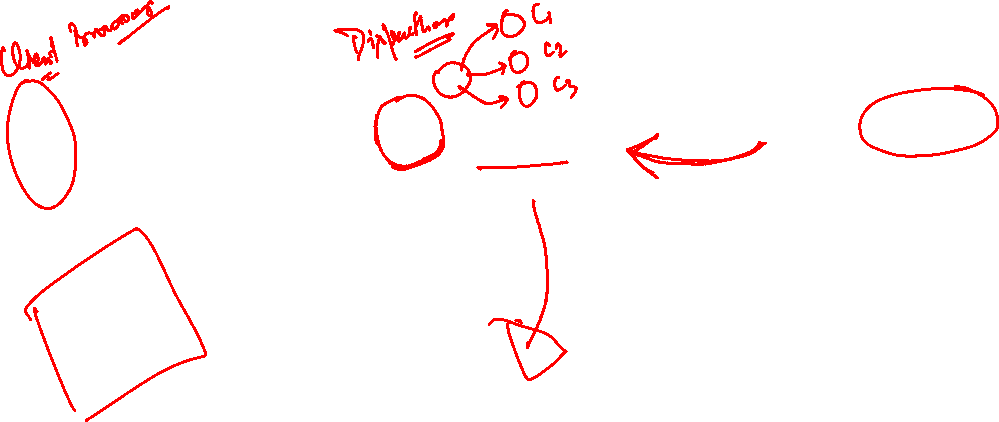 Client Browser
Dispatcher
C1
C2
C3